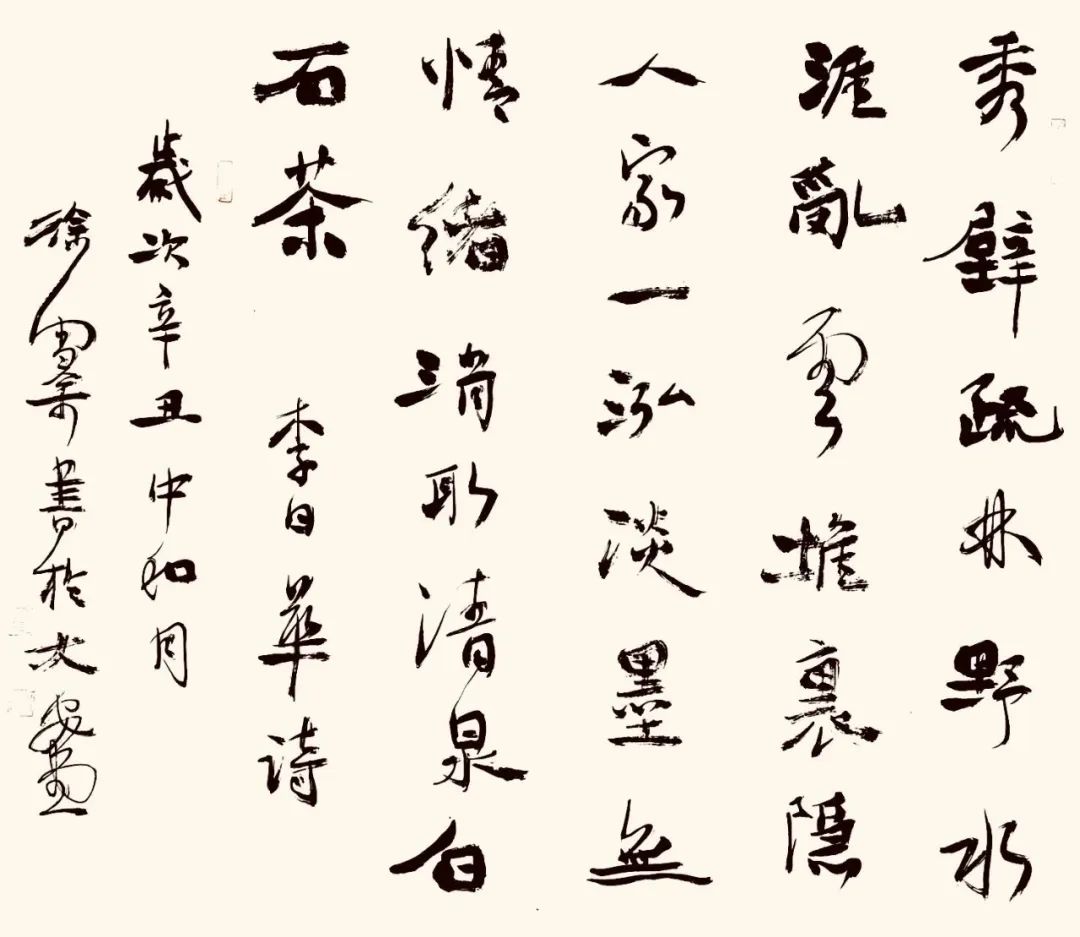 秀壁疏林野水
涯亂雲堆裏隱
人家一泓淡墨無
情緒消取清泉白
石茶 李日華詩
歲次辛丑中和月
徐 書於大